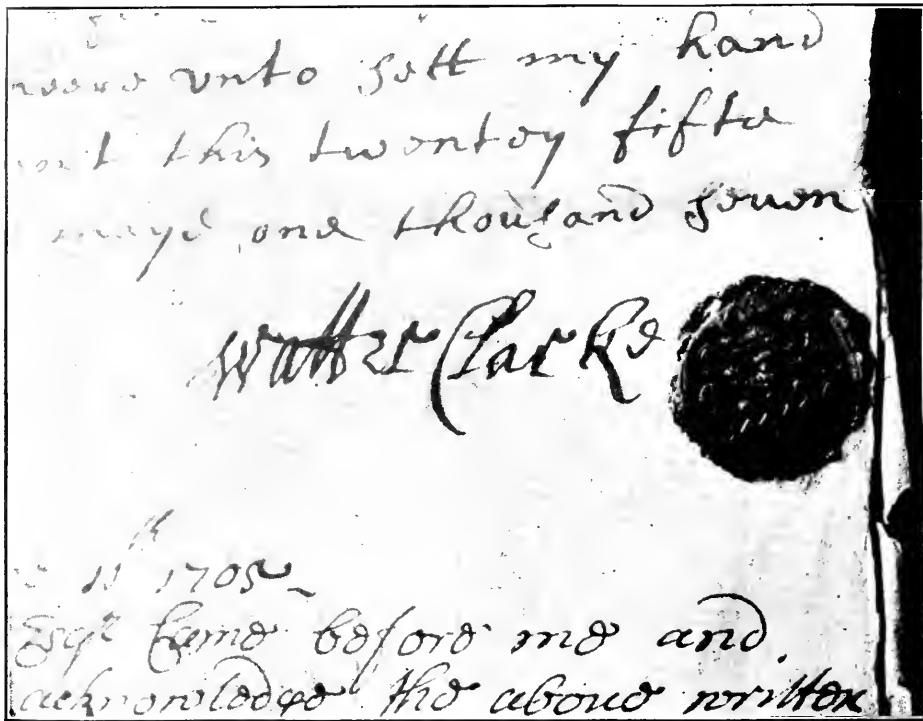 unto sett my hand
this twentey fifte
maye one thousand seuen
Walter Clarke
11th 1705
Esqr Came before me and
acknowledge the aboue written